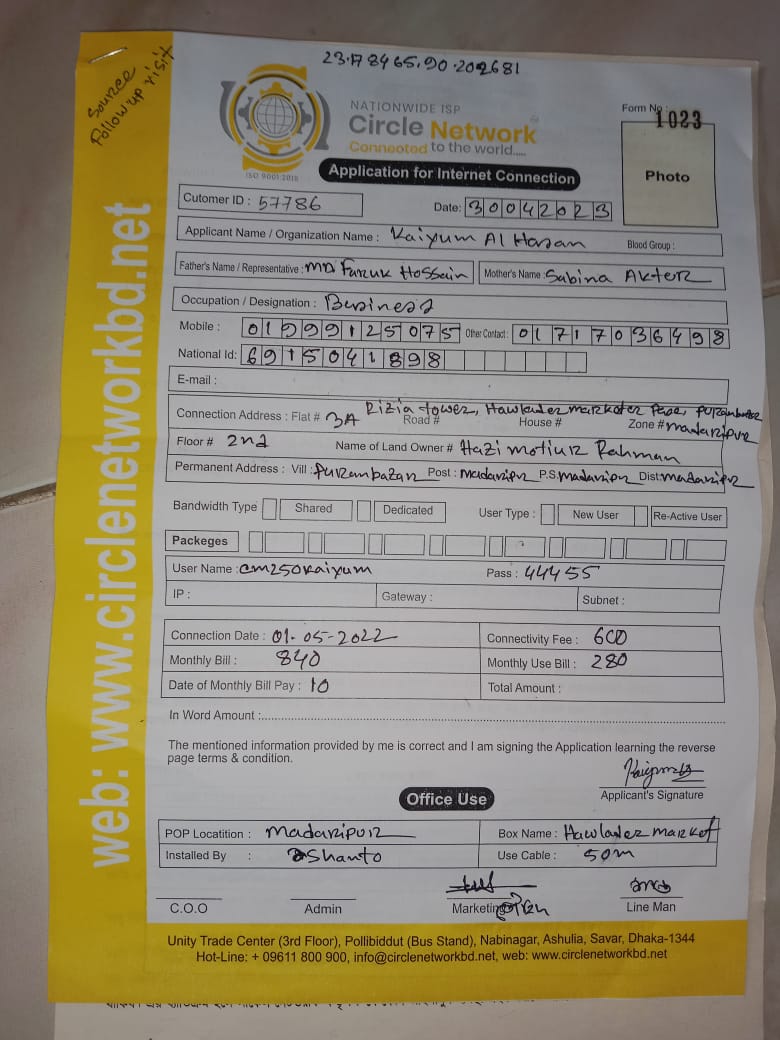 Source
Followup visit
23.178465,90.202681
NATIONWIDE ISP
Circle Network
Connected to the world.....
ISO 9001:2015
Form No : 1023
Photo
Application for Internet Connection
Cutomer ID : 57786
Date: 30042023
Applicant Name / Organization Name : Kaiyum Al Hasan Blood Group :
Father's Name / Representative : MD Faruk Hossain Mother's Name : Sabina Akter
Occupation / Designation : Business
Mobile : 01999125075 Other Contact : 01717036498
National Id: 6915041898
E-mail :
Connection Address : Flat # 3A Rizia tower, Hawlader market Road # House # Zone # madaripur
Floor # 2nd Name of Land Owner # Hazi motiur Rahman
Permanent Address : Vill : puranbazar Post : madaripur P.S. madaripur Dist: madaripur
Bandwidth Type Shared Dedicated User Type : New User Re-Active User
Packeges
User Name : cm250kaiyum Pass : 44455
IP : Gateway : Subnet :
Connection Date : 01-05-2022 Connectivity Fee : 600
Monthly Bill : 840 Monthly Use Bill : 280
Date of Monthly Bill Pay : 10 Total Amount :
In Word Amount :
The mentioned information provided by me is correct and I am signing the Application learning the reverse
page terms & condition.
Applicant's Signature
Office Use
POP Locatition : Madaripur Box Name : Hawlader market
Installed By : Shanto Use Cable : 50m
C.O.O Admin Marketing Line Man
Unity Trade Center (3rd Floor), Pollibiddut (Bus Stand), Nabinagar, Ashulia, Savar, Dhaka-1344
Hot-Line: + 09611 800 900, info@circlenetworkbd.net, web: www.circlenetworkbd.net
web: www.circlenetworkbd.net